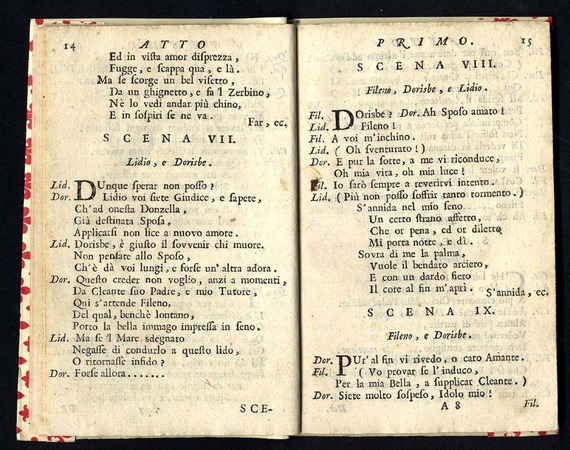 14 ATTO
Ed in vista amor disprezza,
Fugge, e scappa qua, e là.
Ma se scorge un bel visetto,
Da un ghignetto, e fa 'l Zerbino,
Nè lo vedi andar più chino,
E in sospiri se ne va.
Far, ec.
SCENA VII.
Lidio, e Dorisbe.
Lid. DUnque sperar non posso?
Dor. Lidio voi siete Giudice, e sapete,
Ch'ad onesta Donzella,
Già destinata Sposa,
Applicarsi non lice a nuovo amore.
Lid. Dorisbe, è giusto il sovvenir chi muore.
Non pensate allo Sposo,
Ch'è dà voi lungi, e forse un'altra adora.
Dor. Questo creder non voglio, anzi a momenti,
Da Cleante suo Padre, e mio Tutore,
Qui s'attende Fileno,
Del qual, benchè lontano,
Porto la bella immago impressa in seno.
Lid. Ma se 'l Mare sdegnato
Negasse di condurlo a questo lido,
O ritornasse infido?
Dor. Forse allora.......
SCE-
PRIMO. 15
SCENA VIII.
Fileno, Dorisbe, e Lidio.
Fil. DOrisbe? Dor. Ah Sposo amato!
Lid. Fileno!
Fil. A voi m'inchino.
Lid. (Oh sventurato!)
Dor. E pur la sorte, a me vi riconduce,
Oh mia vita, oh mia luce!
Fil. Io sarò sempre a reverirvi intento.
Lid. (Più non posso soffrir tanto tormento.)
S'annida nel mio seno.
Un certo strano affetto,
Che or pena, ed or diletto
Mi porta notte, e dì.
Sovra di me la palma,
Vuole il bendato arciero,
E con un dardo fiero
Il core al fin m'aprì.
S'annida, ec.
SCENA IX.
Fileno, e Dorisbe.
Dor. PUr'al fin vi rivedo, o caro Amante.
Fil. (Vo provar se l'induco,
Per la mia Bella, a supplicar Cleante.)
Dor. Siete molto sospeso, Idolo mio!
A 8 Fil.